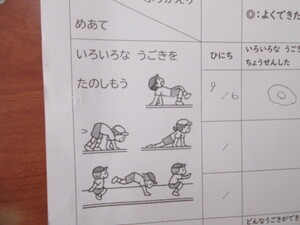 めあて
◎:よくできた
いろいろな うごきを
たのしもう
ひにち
いろいろな うごき
ちょうせんした
9/6
◎
/
/
どんなうごきができ